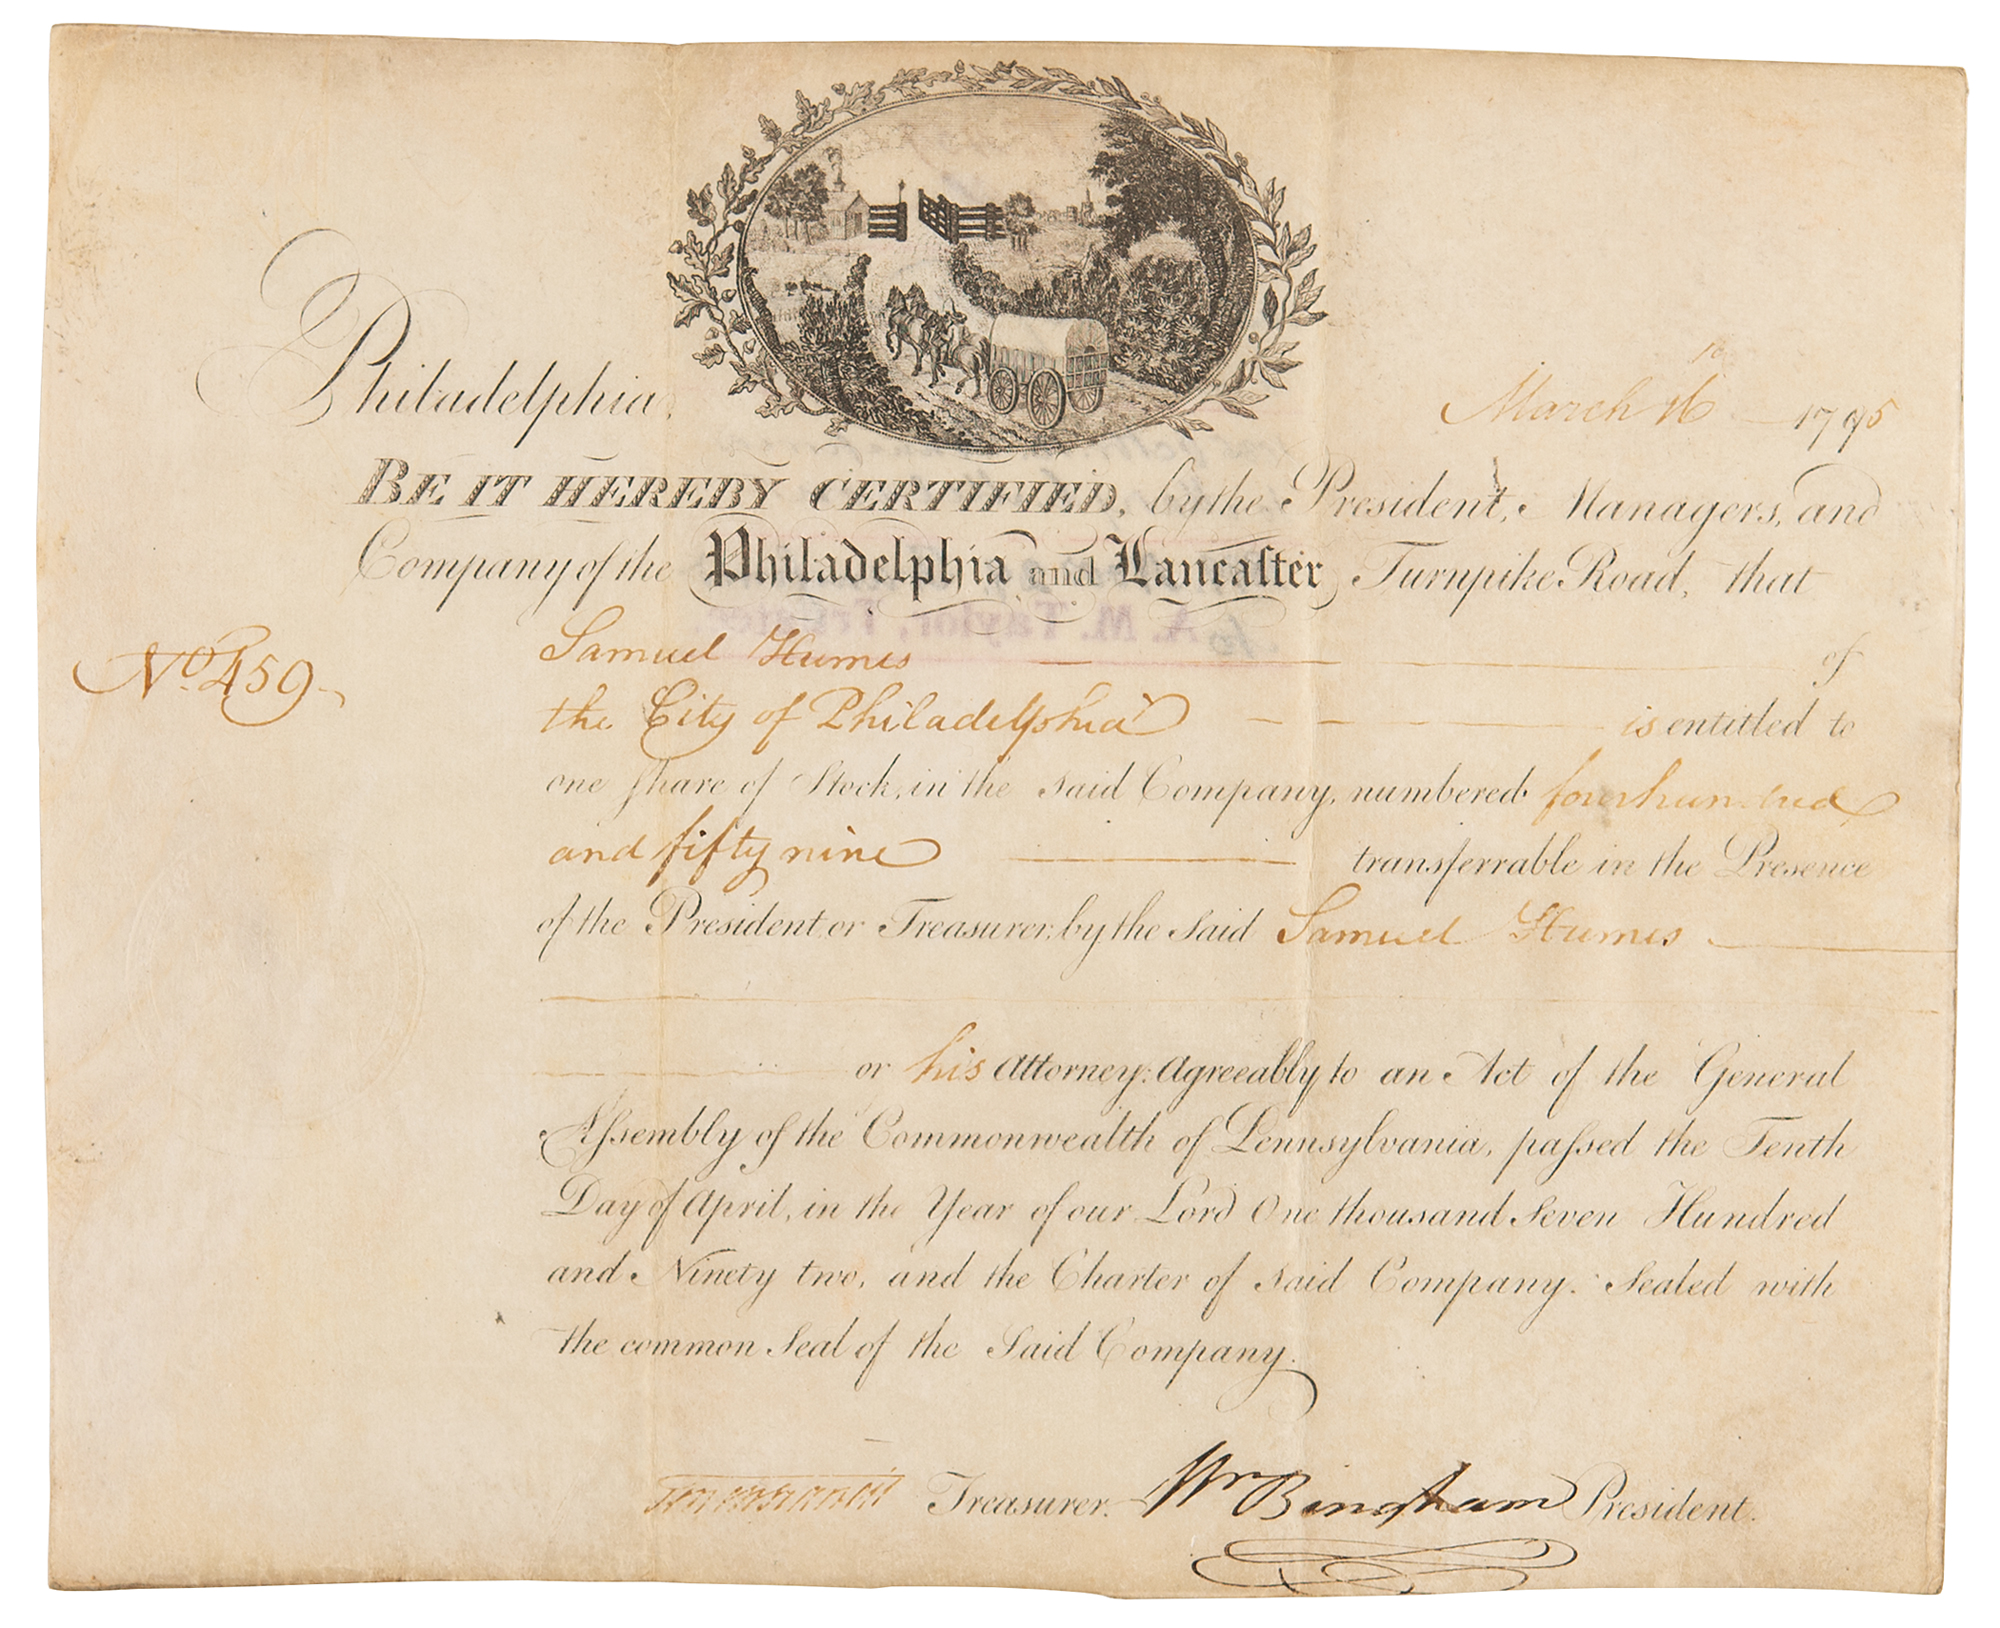 Philadelphia, March 16 1795
BE IT HEREBY CERTIFIED, by the President, Managers, and
Company of the Philadelphia and Lancaſter Turnpike Road, that
Samuel Humes of
No. 459
the City of Philadelphia is entitled to
one ſhare of Stock, in the said Company, numbered four hundred
and fifty nine transferrable in the Presence
of the President, or Treasurer, by the Said Samuel Humes
or his Attorney: Agreeably to an Act of the General
Aſsembly of the Commonwealth of Pennsylvania, paſsed the Tenth
Day of April, in the Year of our Lord One thousand Seven Hundred
and Ninety two, and the Charter of said Company. Sealed with
the common Seal of the Said Company.
Treasurer. Wm Bingham President.